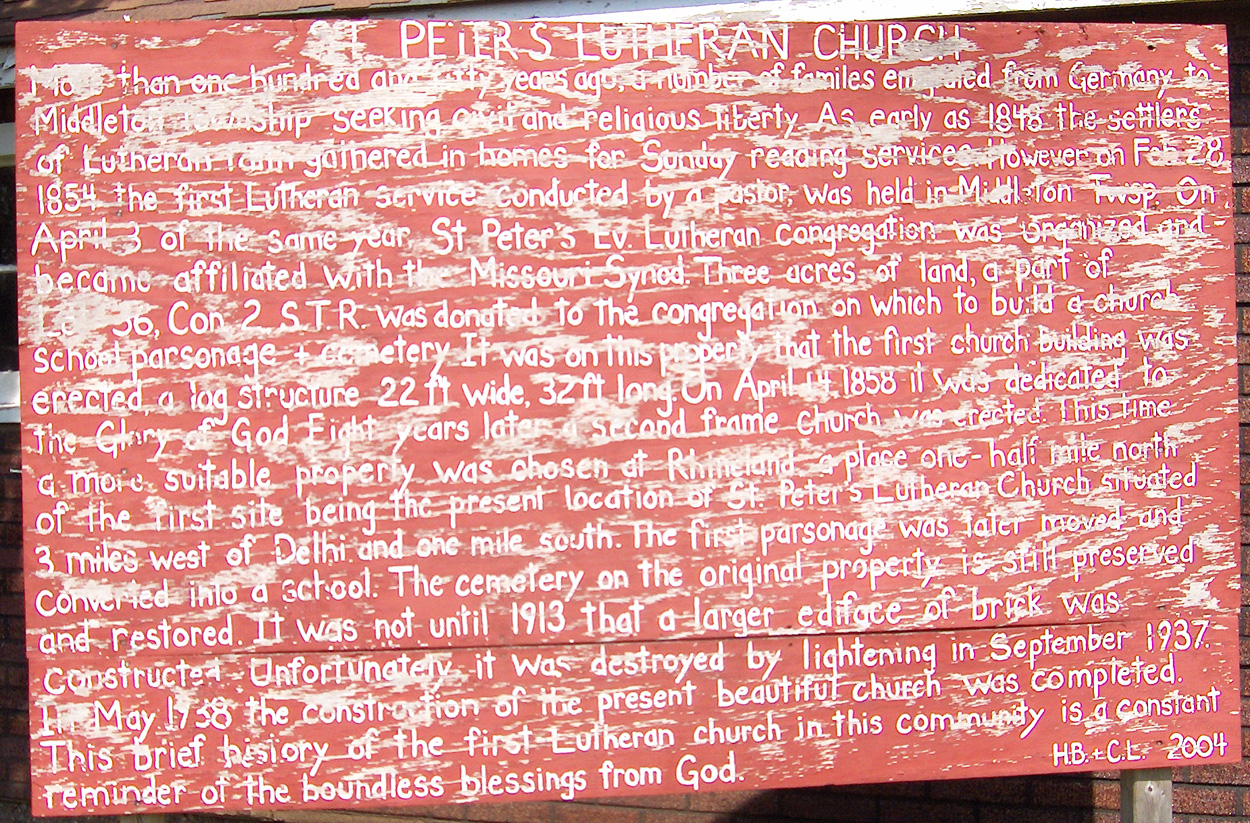 ST PETER'S LUTHERAN CHURCH
More than one hundred and fifty years ago, a number of familes emigrated from Germany to
Middleton township seeking civil and religious liberty As early as 1846 the settlers
of Lutheran faith gathered in homes for Sunday reading services. However on Feb 28,
1854 the first Lutheran service conducted by a pastor, was held in Middleton Twsp. On
April 3 of the same year St Peter's Ev. Lutheran congregation was organized and
became affiliated with the Missouri Synod. Three acres of land, a part of
Lot 36, Con. 2 S.T.R. was donated to the congregation on which to build a church
school parsonage + cemetery It was on this property that the first church building was
erected, a log structure 22 ft wide, 32 ft long. On April 14, 1858 it was dedicated to
the Glory of God Eight years later a second frame church was erected. This time
a more suitable property was chosen at Rhineland, a place one-half mile north
of the first site being the present location of St. Peter's Lutheran Church situated
3 miles west of Delhi and one mile south. The first parsonage was later moved and
converted into a school. The cemetery on the original property is still preserved
and restored. It was not until 1913 that a larger ediface of brick was
constructed. Unfortunately it was destroyed by lightening in September 1937.
In May 1938 the construction of the present beautiful church was completed.
This brief history of the first Lutheran church in this community is a constant
reminder of the boundless blessings from God.
H.B. + C.L. 2004